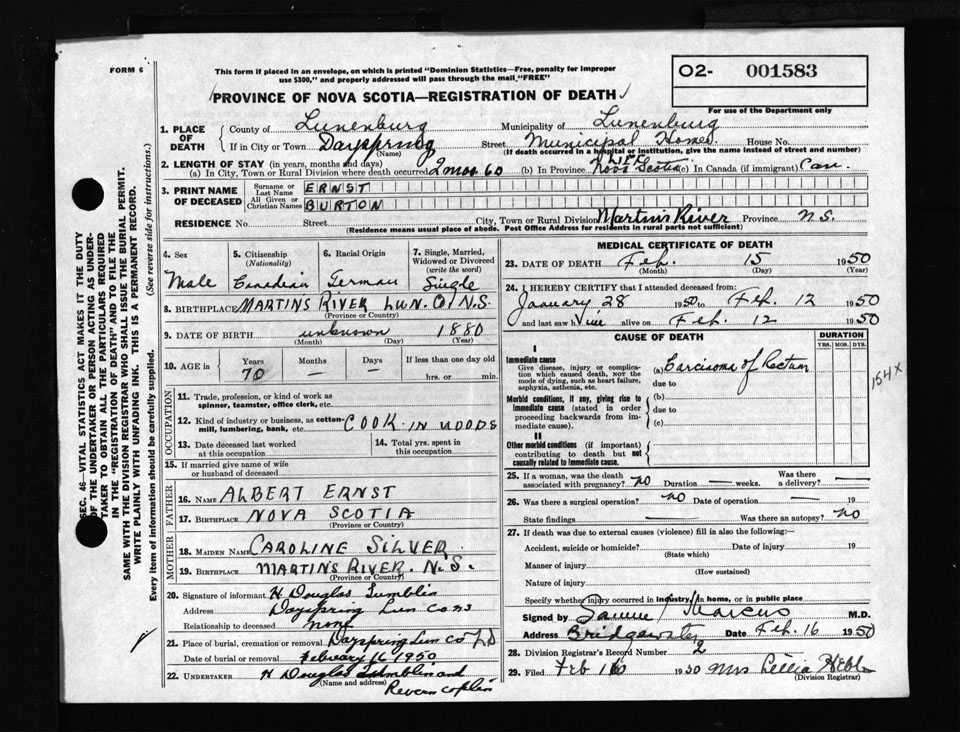 FORM 6
This form if placed in an envelope, on which is printed "Dominion Statistics—Free, penalty for improper
use $300," and properly addressed will pass through the mail "FREE"
O2- 001583
For use of the Department only
PROVINCE OF NOVA SCOTIA—REGISTRATION OF DEATH
1. PLACE OF DEATH
County of Lunenburg Municipality of Lunenburg
If in City or Town Dayspring (Name) Street Municipal Home House No.
(If death occurred in a hospital or institution, give the name instead of street and number)
2. LENGTH OF STAY (in years, months and days)
(a) In City, Town or Rural Division where death occurred 2 mos (b) In Province LIFE Nova Scotia (c) In Canada (if immigrant) Can.
3. PRINT NAME OF DECEASED
Surname or Last Name ERNST
All Given or Christian Names BURTON
RESIDENCE No. Street City, Town or Rural Division Martins River Province N.S.
(Residence means usual place of abode. Post Office Address for residents in rural parts not sufficient)
4. Sex Male
5. Citizenship (Nationality) Canadian
6. Racial Origin German
7. Single, Married, Widowed or Divorced (write the word) Single
8. BIRTHPLACE MARTINS RIVER LUN. N.S.
(Province or Country)
9. DATE OF BIRTH unknown 1880
(Month) (Day) (Year)
10. AGE in Years 70 Months — Days — If less than one day old hrs. or min.
OCCUPATION
11. Trade, profession, or kind of work as spinner, teamster, office clerk, etc.
12. Kind of industry or business, as cotton-mill, lumbering, bank, etc. COOK IN WOODS
13. Date deceased last worked at this occupation
14. Total yrs. spent in this occupation
15. If married give name of wife or husband of deceased
FATHER
16. NAME ALBERT ERNST
17. BIRTHPLACE NOVA SCOTIA
(Province or Country)
MOTHER
18. MAIDEN NAME CAROLINE SILVER
19. BIRTHPLACE MARTINS RIVER. N.S.
(Province or Country)
20. Signature of informant H Douglas Tumblin
Address Dayspring Lun Co NS
Relationship to deceased none
21. Place of burial, cremation or removal Dayspring Lun Co
Date of burial or removal February 16 1950
22. UNDERTAKER H Douglas Tumblin and
(Name and address)
MEDICAL CERTIFICATE OF DEATH
23. DATE OF DEATH Feb. 15 1950
(Month) (Day) (Year)
24. I HEREBY CERTIFY that I attended deceased from:
January 28 1950 to Feb. 12 1950
and last saw him alive on Feb. 12 1950
CAUSE OF DEATH
DURATION
YRS. MOS. DYS.
I
Immediate cause
Give disease, injury or complication which caused death, NOT the mode of dying, such as heart failure, asphyxia, asthenia, etc.
(a) Carcinoma of Rectum
due to
154X
Morbid conditions, if any, giving rise to immediate cause (stated in order proceeding backwards from immediate cause).
(b)
due to
(c)
II
Other morbid conditions (if important) contributing to death but not causally related to immediate cause.
25. If a woman, was the death associated with pregnancy? no Duration — weeks. Was there a delivery? —
26. Was there a surgical operation? no Date of operation — 19
State findings Was there an autopsy? no
27. If death was due to external causes (violence) fill in also the following:—
Accident, suicide or homicide? Date of injury 19
(State which)
Manner of injury
(How sustained)
Nature of injury
Specify whether injury occurred in industry, in home, or in public place
Signed by Marcus M.D.
Address Bridgewater Date Feb. 16 1950
28. Division Registrar's Record Number 2
29. Filed Feb 16 1950 Mrs
(Division Registrar)
SEC. 46—VITAL STATISTICS ACT MAKES IT THE DUTY
OF THE UNDERTAKER OR PERSON ACTING AS UNDERTAKER TO OBTAIN ALL THE PARTICULARS REQUIRED
IN THE "REGISTRATION OF DEATH" AND TO FILE THE
SAME WITH THE DIVISION REGISTRAR WHO SHALL ISSUE THE BURIAL PERMIT.
WRITE PLAINLY WITH UNFADING INK. THIS IS A PERMANENT RECORD.
Every item of information should be carefully supplied. (See reverse side for instructions.)